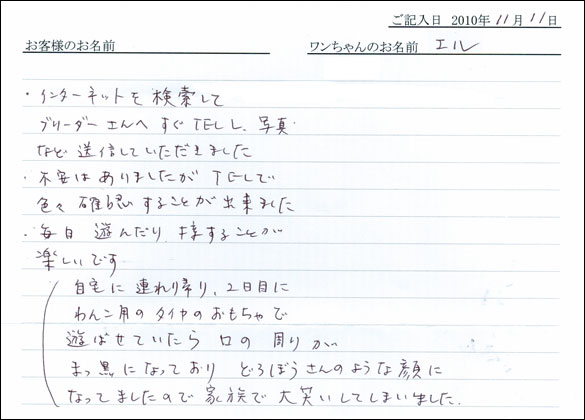 ご記入日 2010年 11月 11日
お客様のお名前 ワンちゃんのお名前 エル
・インターネットを検索して
ブリーダーさんへ すぐTELし、写真
など送信していただきました
・不安はありましたがTELで
色々確認することが出来ました
・毎日 遊んだり、することが
楽しいです
自宅に連れり帰り、2日目に
わんこ用のタイヤのおもちゃで
遊ばせていたら口の周りが
まっ黒になっており どろぼうさんのような顔に
なってましたので家族で大笑いしてしまいました.